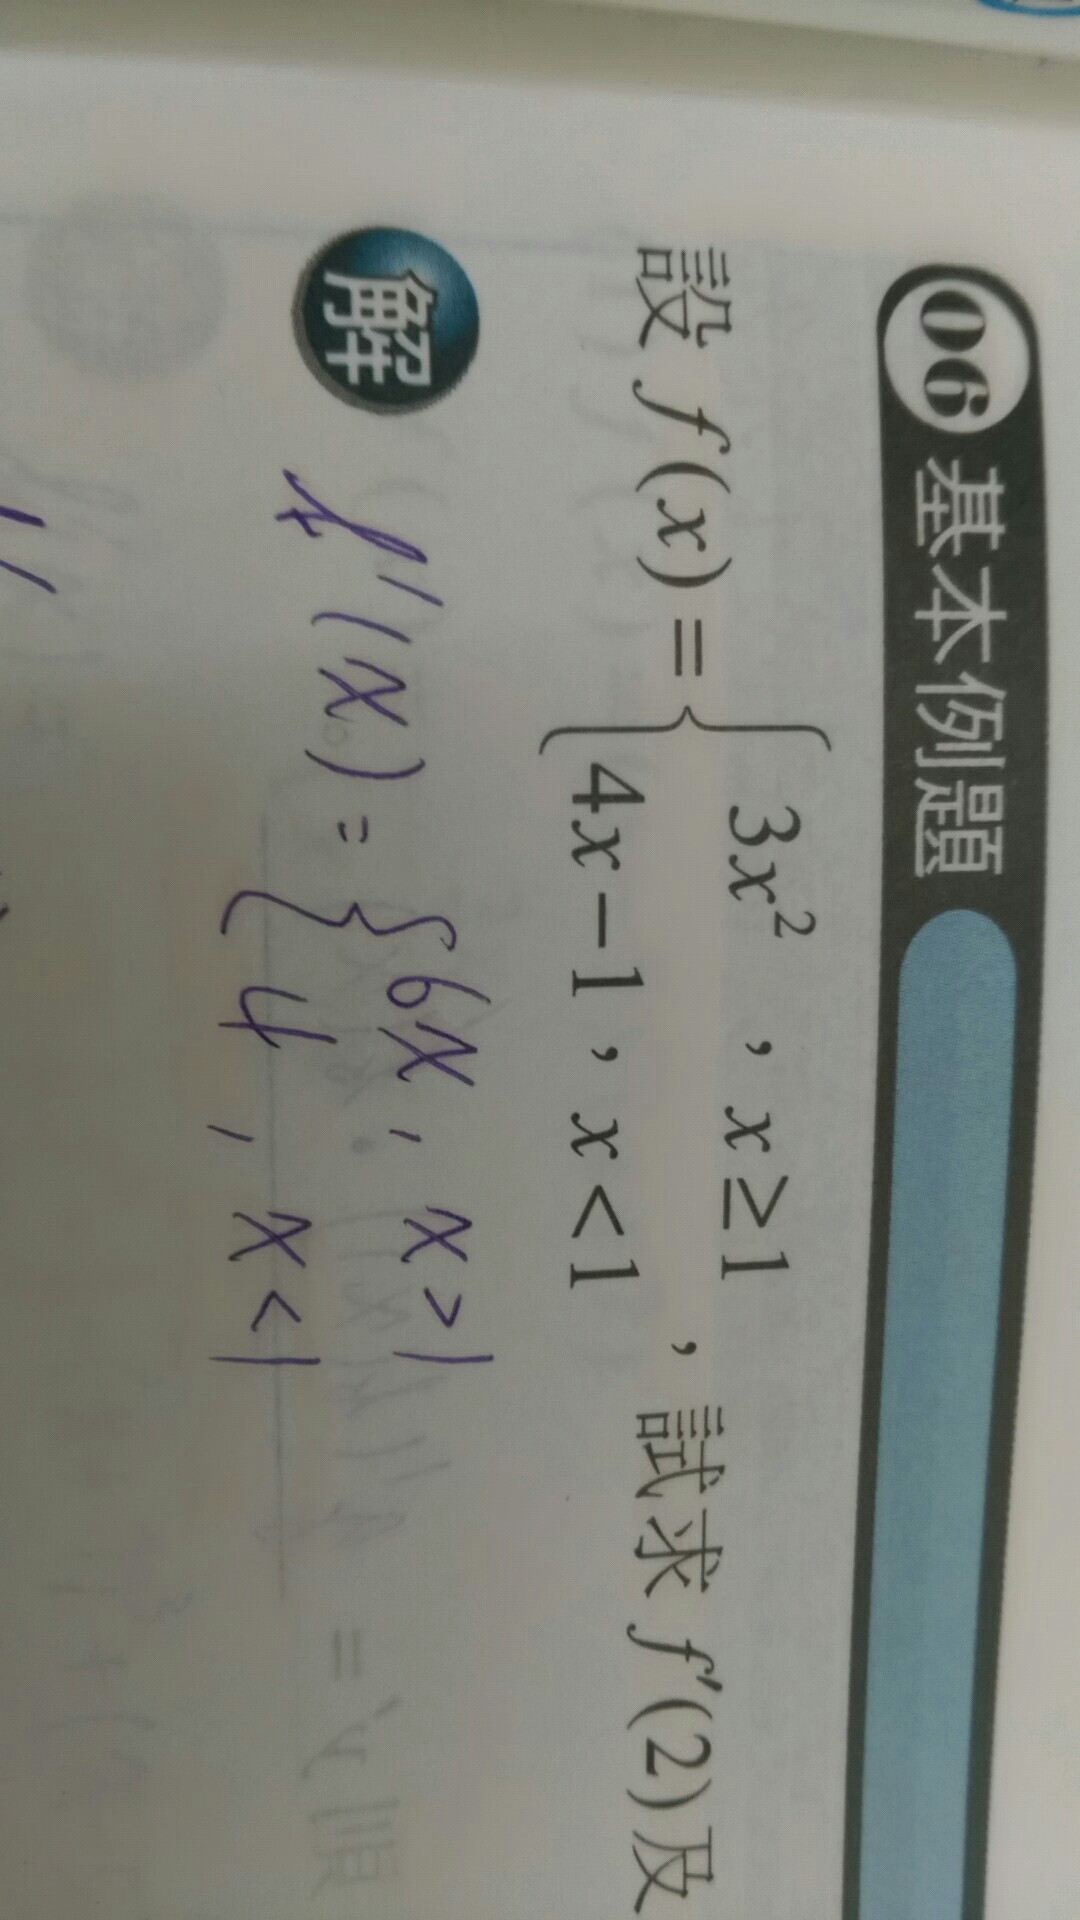 06 基本例題
設 f(x) = { 3x² , x ≥ 1
4x − 1 , x < 1 , 試求 f′(2) 及
解
f′(x) = { 6x , x > 1
4 , x < 1